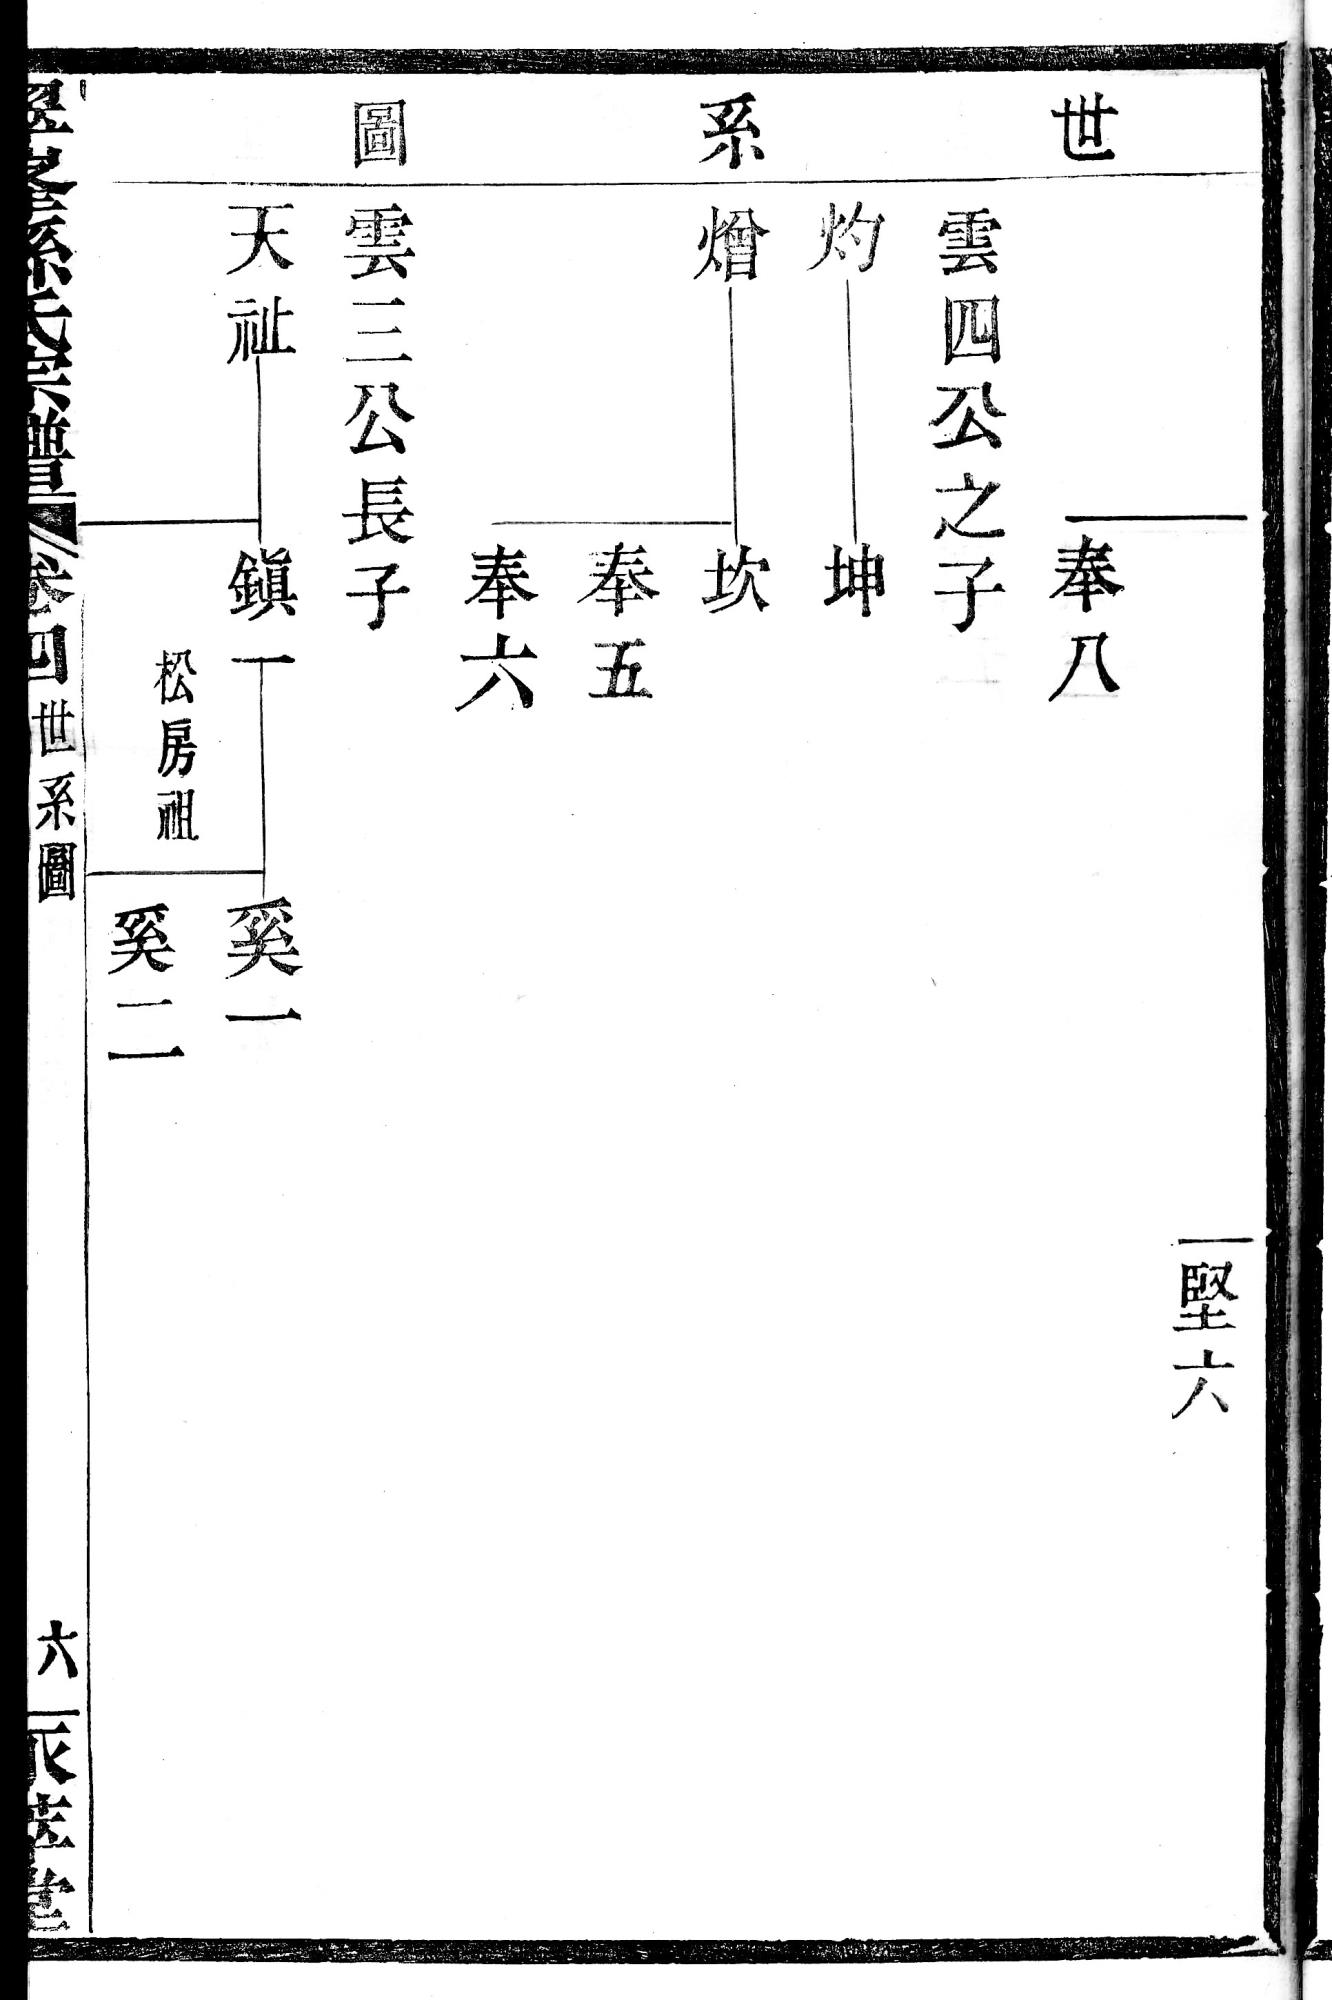 世系圖
堅六
奉八
雲四公之子
灼
坤
熷
坎
奉五
奉六
雲三公長子
天祉
鎭一
奚一
松房祖
奚二
孫氏宗譜
卷四
世系圖
六